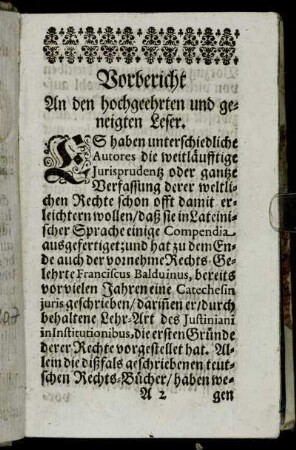 Vorbericht
An den hochgeehrten und ge-
neigten Leser.
ES haben unterschiedliche
Autores die weitläufftige
Jurisprudentz oder gantze
Verfassung derer weltli-
chen Rechte schon offt damit er-
leichtern wollen/ daß sie in Lateini-
scher Sprache einige Compendia
ausgefertiget; und hat zu dem En-
de auch der vornehme Rechts-Ge-
lehrte Franciscus Balduinus, bereits
vor vielen Jahren eine Catechesin
juris geschrieben/ dariñen er/ durch
behaltene Lehr-Art des Justiniani
in Institutionibus, die ersten Gründe
derer Rechte vorgestellet hat. Al-
lein die dißfals geschriebenen teut-
schen Rechts-Bücher/ haben we-
A 2 gen